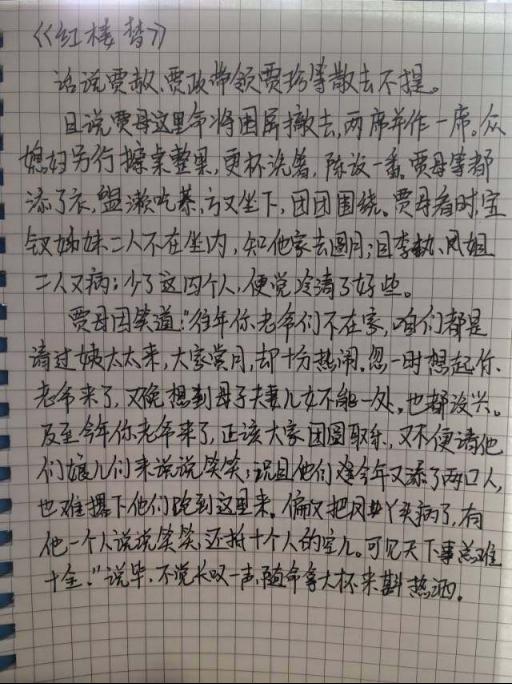 《红楼梦》
话说贾赦、贾政带领贾珍等散去不提。
且说贾母这里命将围屏撤去，两席并作一席。众
媳妇另行擦桌整果，更杯洗箸，陈设一番。贾母等都
添了衣，盥漱吃茶，方又坐下，团团围绕。贾母看时，宝
钗姊妹二人不在坐内，知他家去圆月；且李纨、凤姐
二人又病；少了这四个人，便觉冷清了好些。
贾母因笑道："往年你老爷们不在家，咱们都是
请过姨太太来，大家赏月，却十分热闹。忽一时想起你
老爷来了，又不免想到母子夫妻儿女不能一处，也都没兴。
及至今年你老爷来了，正该大家团圆取乐，又不便请他
们娘儿们来说说笑笑；况且他们今年又添了两口人，
也难撂下他们跑到这里来。偏又把凤丫头病了，有
他一个人说说笑笑，还抵十个人的空儿。可见天下事总难
十全。"说毕，不觉长叹一声，随命拿大杯来斟热酒。